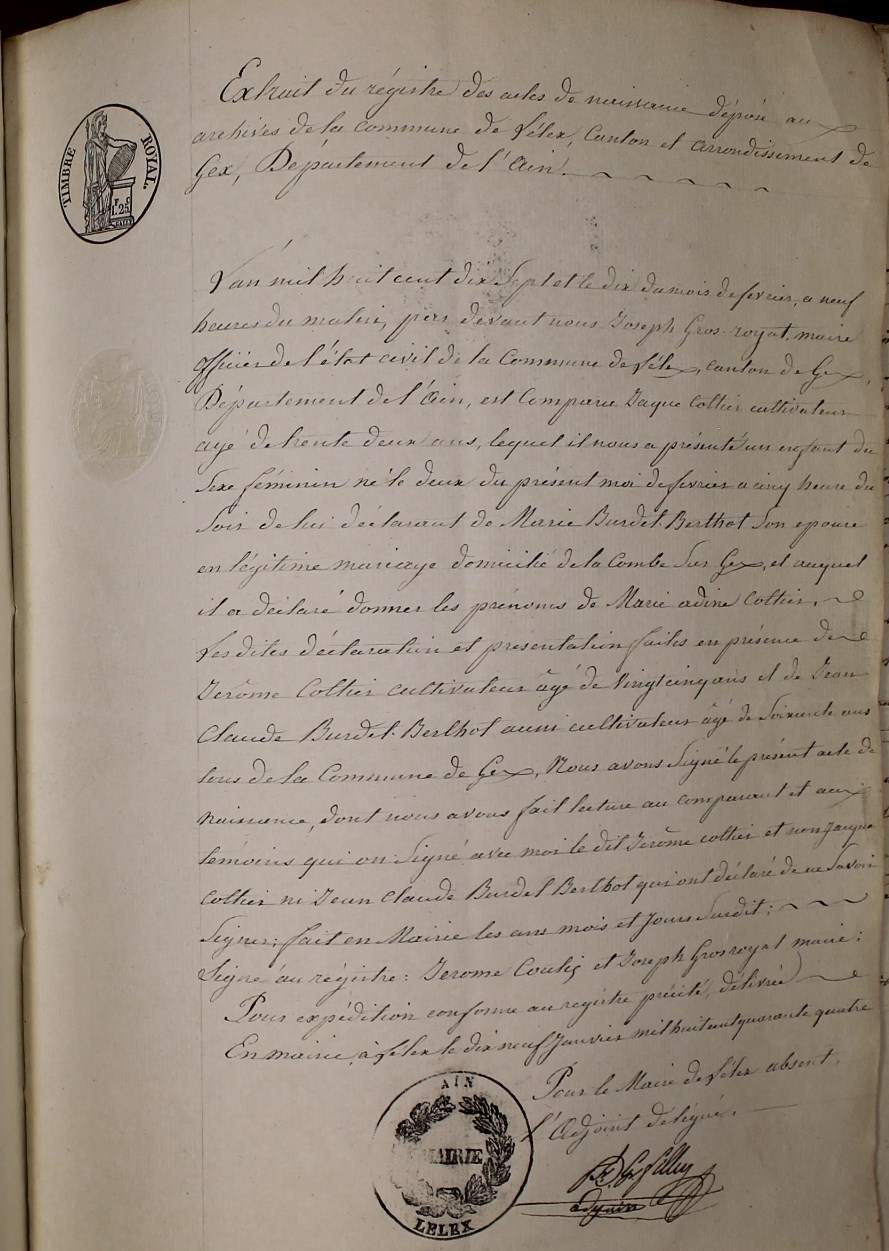 TIMBRE ROYAL.
F. C.
1.25
Extrait du régistre des actes de naissance déposé aux
archives de la commune de Lélex, Canton et arrondissement de
Gex, Département de l'Ain.
L'an mil huit cent dix Sept et le dix du mois de fevrier, a neuf
heures du matin, par devant nous Joseph Gros-royat, maire
officier de l'état civil de la Commune de Lélex, canton de Gex,
Département de l'Ain, est Comparu Jaque Coltier cultivateur
agé de trente deux ans, lequel il nous a présenté un enfant du
Sexe féminin né le deux du présent moi de fevrier a cinq heure du
Soir de lui déclarant de Marie Burdet-Berthot Son epouse
en légitime mariage domicilié de la Combe Sur Gex, et auquel
il a déclaré donner les prénoms de Marie adine Coltier,
Lesdites déclaration et presentation faites en présence de
Jerôme Coltier cultivateur âgé de Vingt cinq ans et de Jean
Claude Burdet-Berthot aussi cultivateur âgé de Soixante ans
tous de la Commune de Gex, Nous avons Signé le présent acte de
naissance, dont nous avons fait lecture au comparant et aux
témoins qui on Signé avec moi le dit Jerôme coltier et non Jacque
Coltier ni Jean Claude Burdet Berthot qui ont déclaré de ne Savoir
Signer; fait en Mairie les ans mois et Jours Susdit;
Signé au régistre: Jerome et Joseph Grosroyat maire;
Pour expédition conforme au registre précité, délivrée
En mairie, à Lélex le dix neuf Janvier mil huit cent quarante quatre
Pour le Maire de Lélex absent,
l'Adjoint délégué,
adjoint
AIN
MAIRIE
LELEX